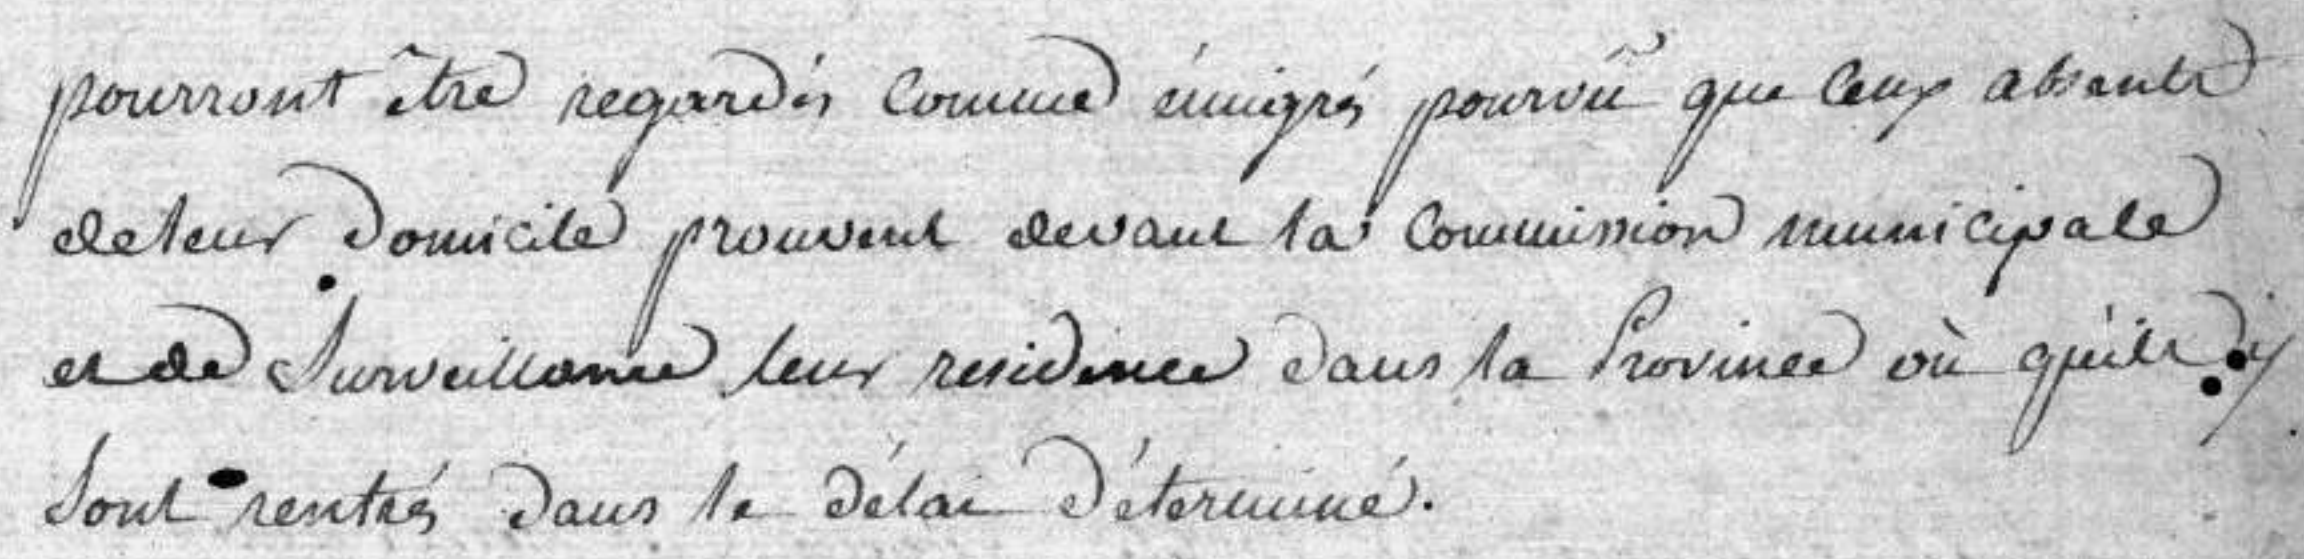 pourront être regardés comme émigrés pourvû que ceux absents
de leur domicile prouvent devant la Commission municipale
et de Surveillance leur residence dans la Province où qu'ils y
sont rentrés dans le délai déterminé.